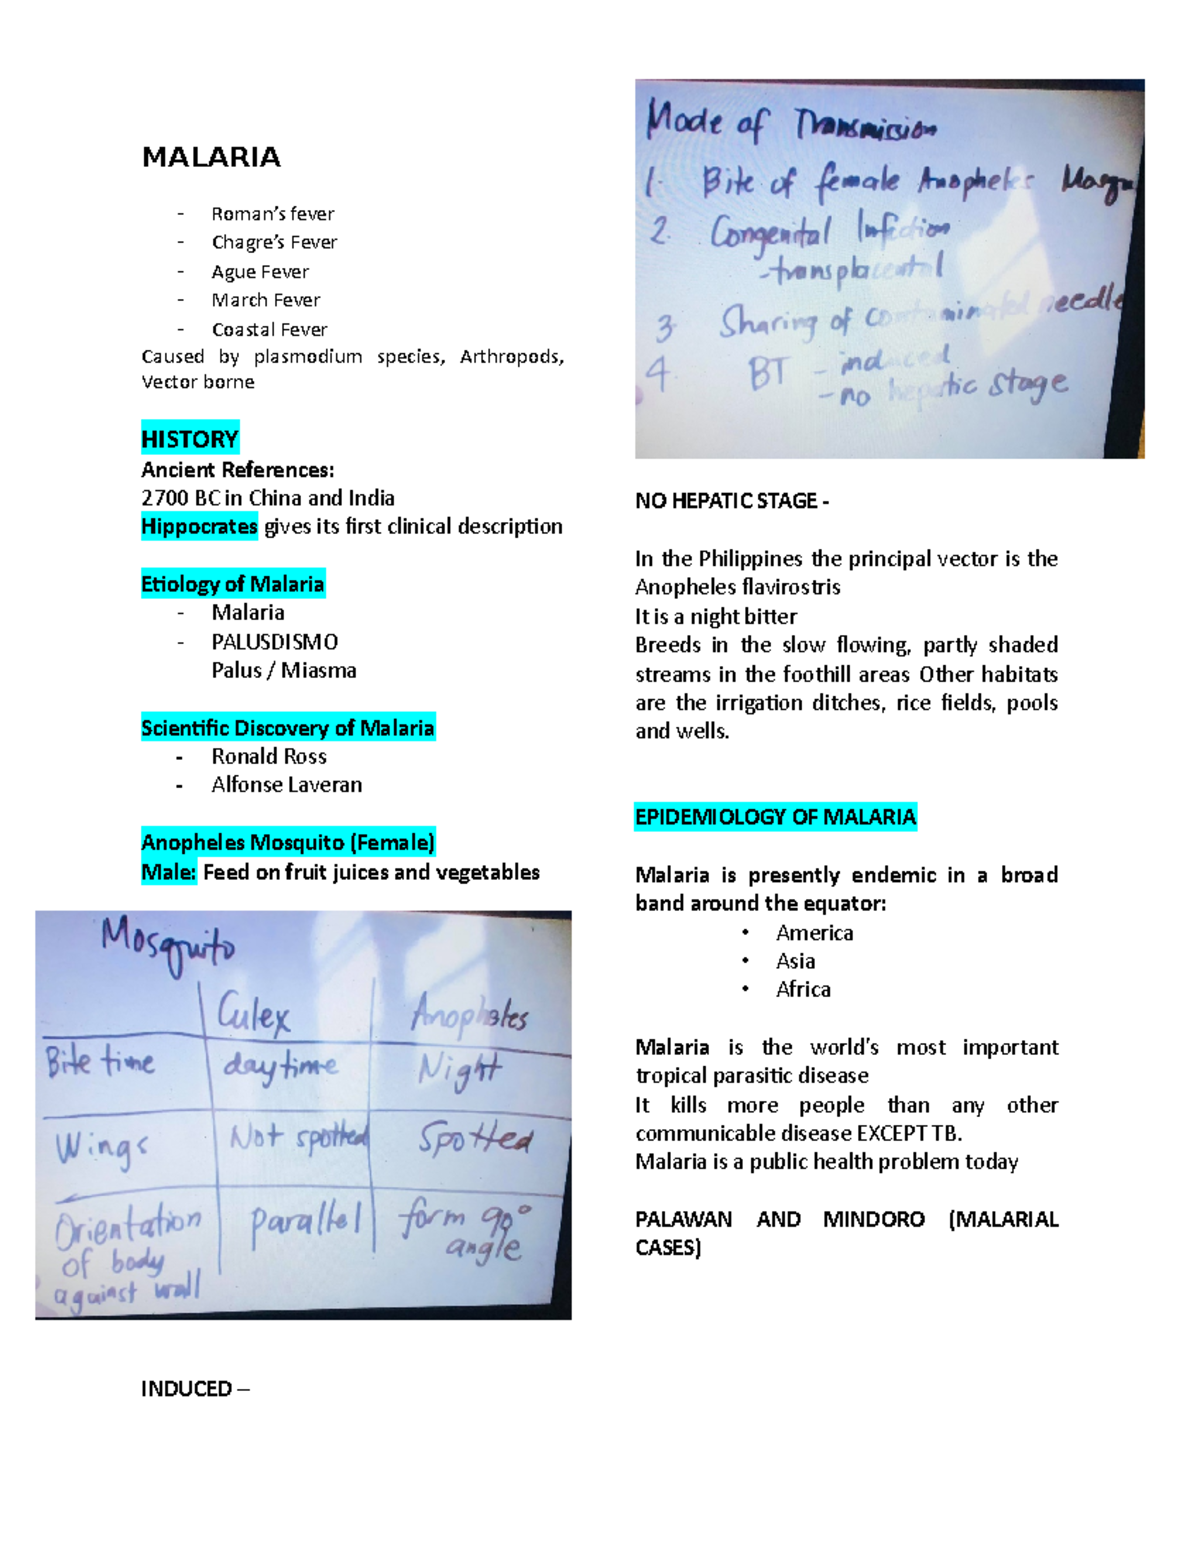 MALARIA
- Roman's fever
- Chagre's Fever
- Ague Fever
- March Fever
- Coastal Fever
Caused by plasmodium species, Arthropods,
Vector borne
HISTORY
Ancient References:
2700 BC in China and India
Hippocrates gives its first clinical description
Etiology of Malaria
- Malaria
- PALUSDISMO
Palus / Miasma
Scientific Discovery of Malaria
- Ronald Ross
- Alfonse Laveran
Anopheles Mosquito (Female)
Male: Feed on fruit juices and vegetables
Mosquito
Culex Anopheles
Bite time daytime Night
Wings Not spotted Spotted
Orientation parallel form 90°
of body angle
against wall
INDUCED –
Mode of Transmission
1. Bite of female Anopheles Mosqu
2. Congenital Infection
-transplacental
3. Sharing of contaminated needle
4. BT - induced
- no hepatic stage
NO HEPATIC STAGE -
In the Philippines the principal vector is the
Anopheles flavirostris
It is a night bitter
Breeds in the slow flowing, partly shaded
streams in the foothill areas Other habitats
are the irrigation ditches, rice fields, pools
and wells.
EPIDEMIOLOGY OF MALARIA
Malaria is presently endemic in a broad
band around the equator:
• America
• Asia
• Africa
Malaria is the world's most important
tropical parasitic disease
It kills more people than any other
communicable disease EXCEPT TB.
Malaria is a public health problem today
PALAWAN AND MINDORO (MALARIAL
CASES)